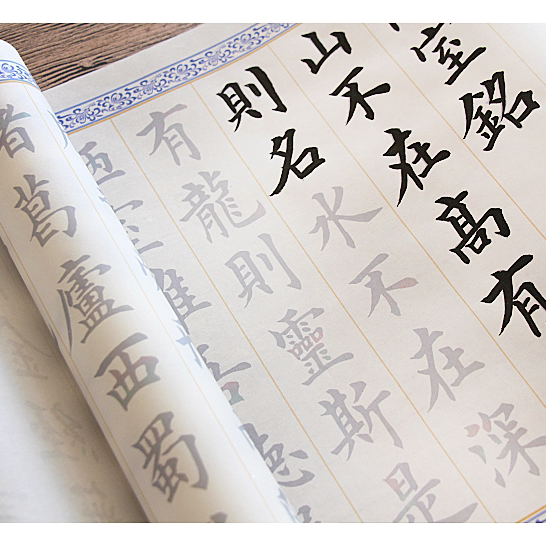 室銘
山不在高有
則名水不在深
有龍則靈斯是
室惟吾德
葛廬西蜀